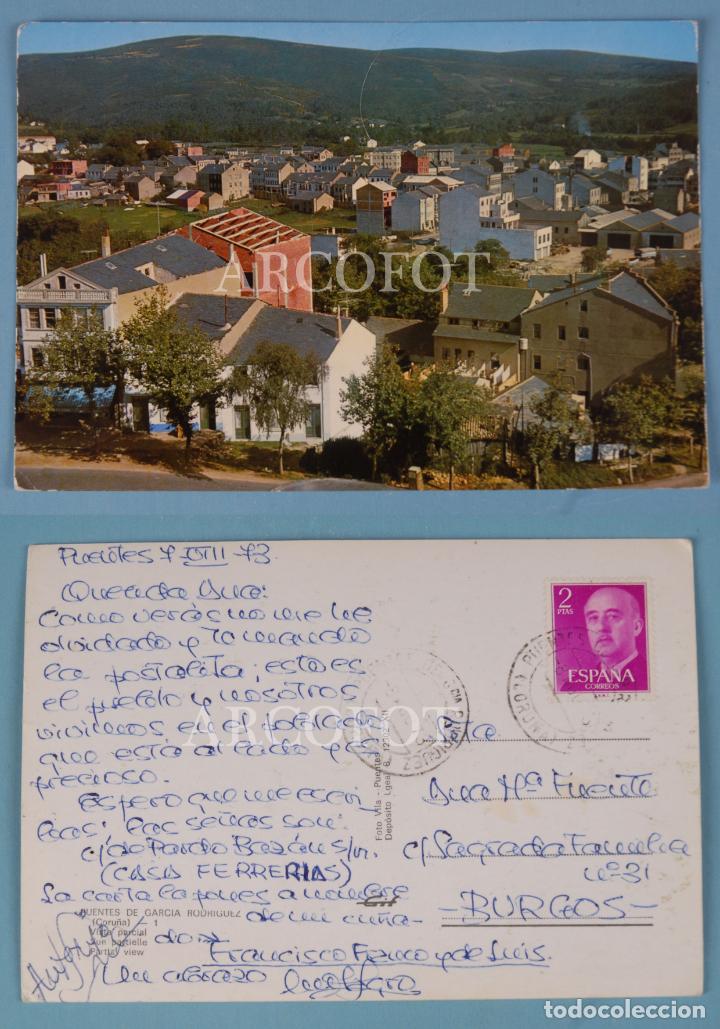 ARCOFOT
Puentes 7 VIII 73
Querida Ana:
Como verás no me he
olvidado y te mando
la postalita; esto es
el pueblo y nosotros
vivimos en el poblado
que está al lado y es
precioso.
Espero que me escri
bas; las señas son:
c/ de Pardo Bazán s/n.
(CASA FERRERIAS)
La carta la pones a nombre
de mi cuña-
do
Francisco Franco y de Luis.
Un abrazo
PUENTES DE GARCIA RODRIGUEZ
(Coruña) - 1
Vista parcial
Vue partielle
Partial view
Foto Vila - Puentes
Depósito Legal B.
2
PTAS
ESPAÑA
CORREOS
Ana Mª Fuente
c/ Sagrada Familia
nº 31
BURGOS
ARCOFOT
todocoleccion.net